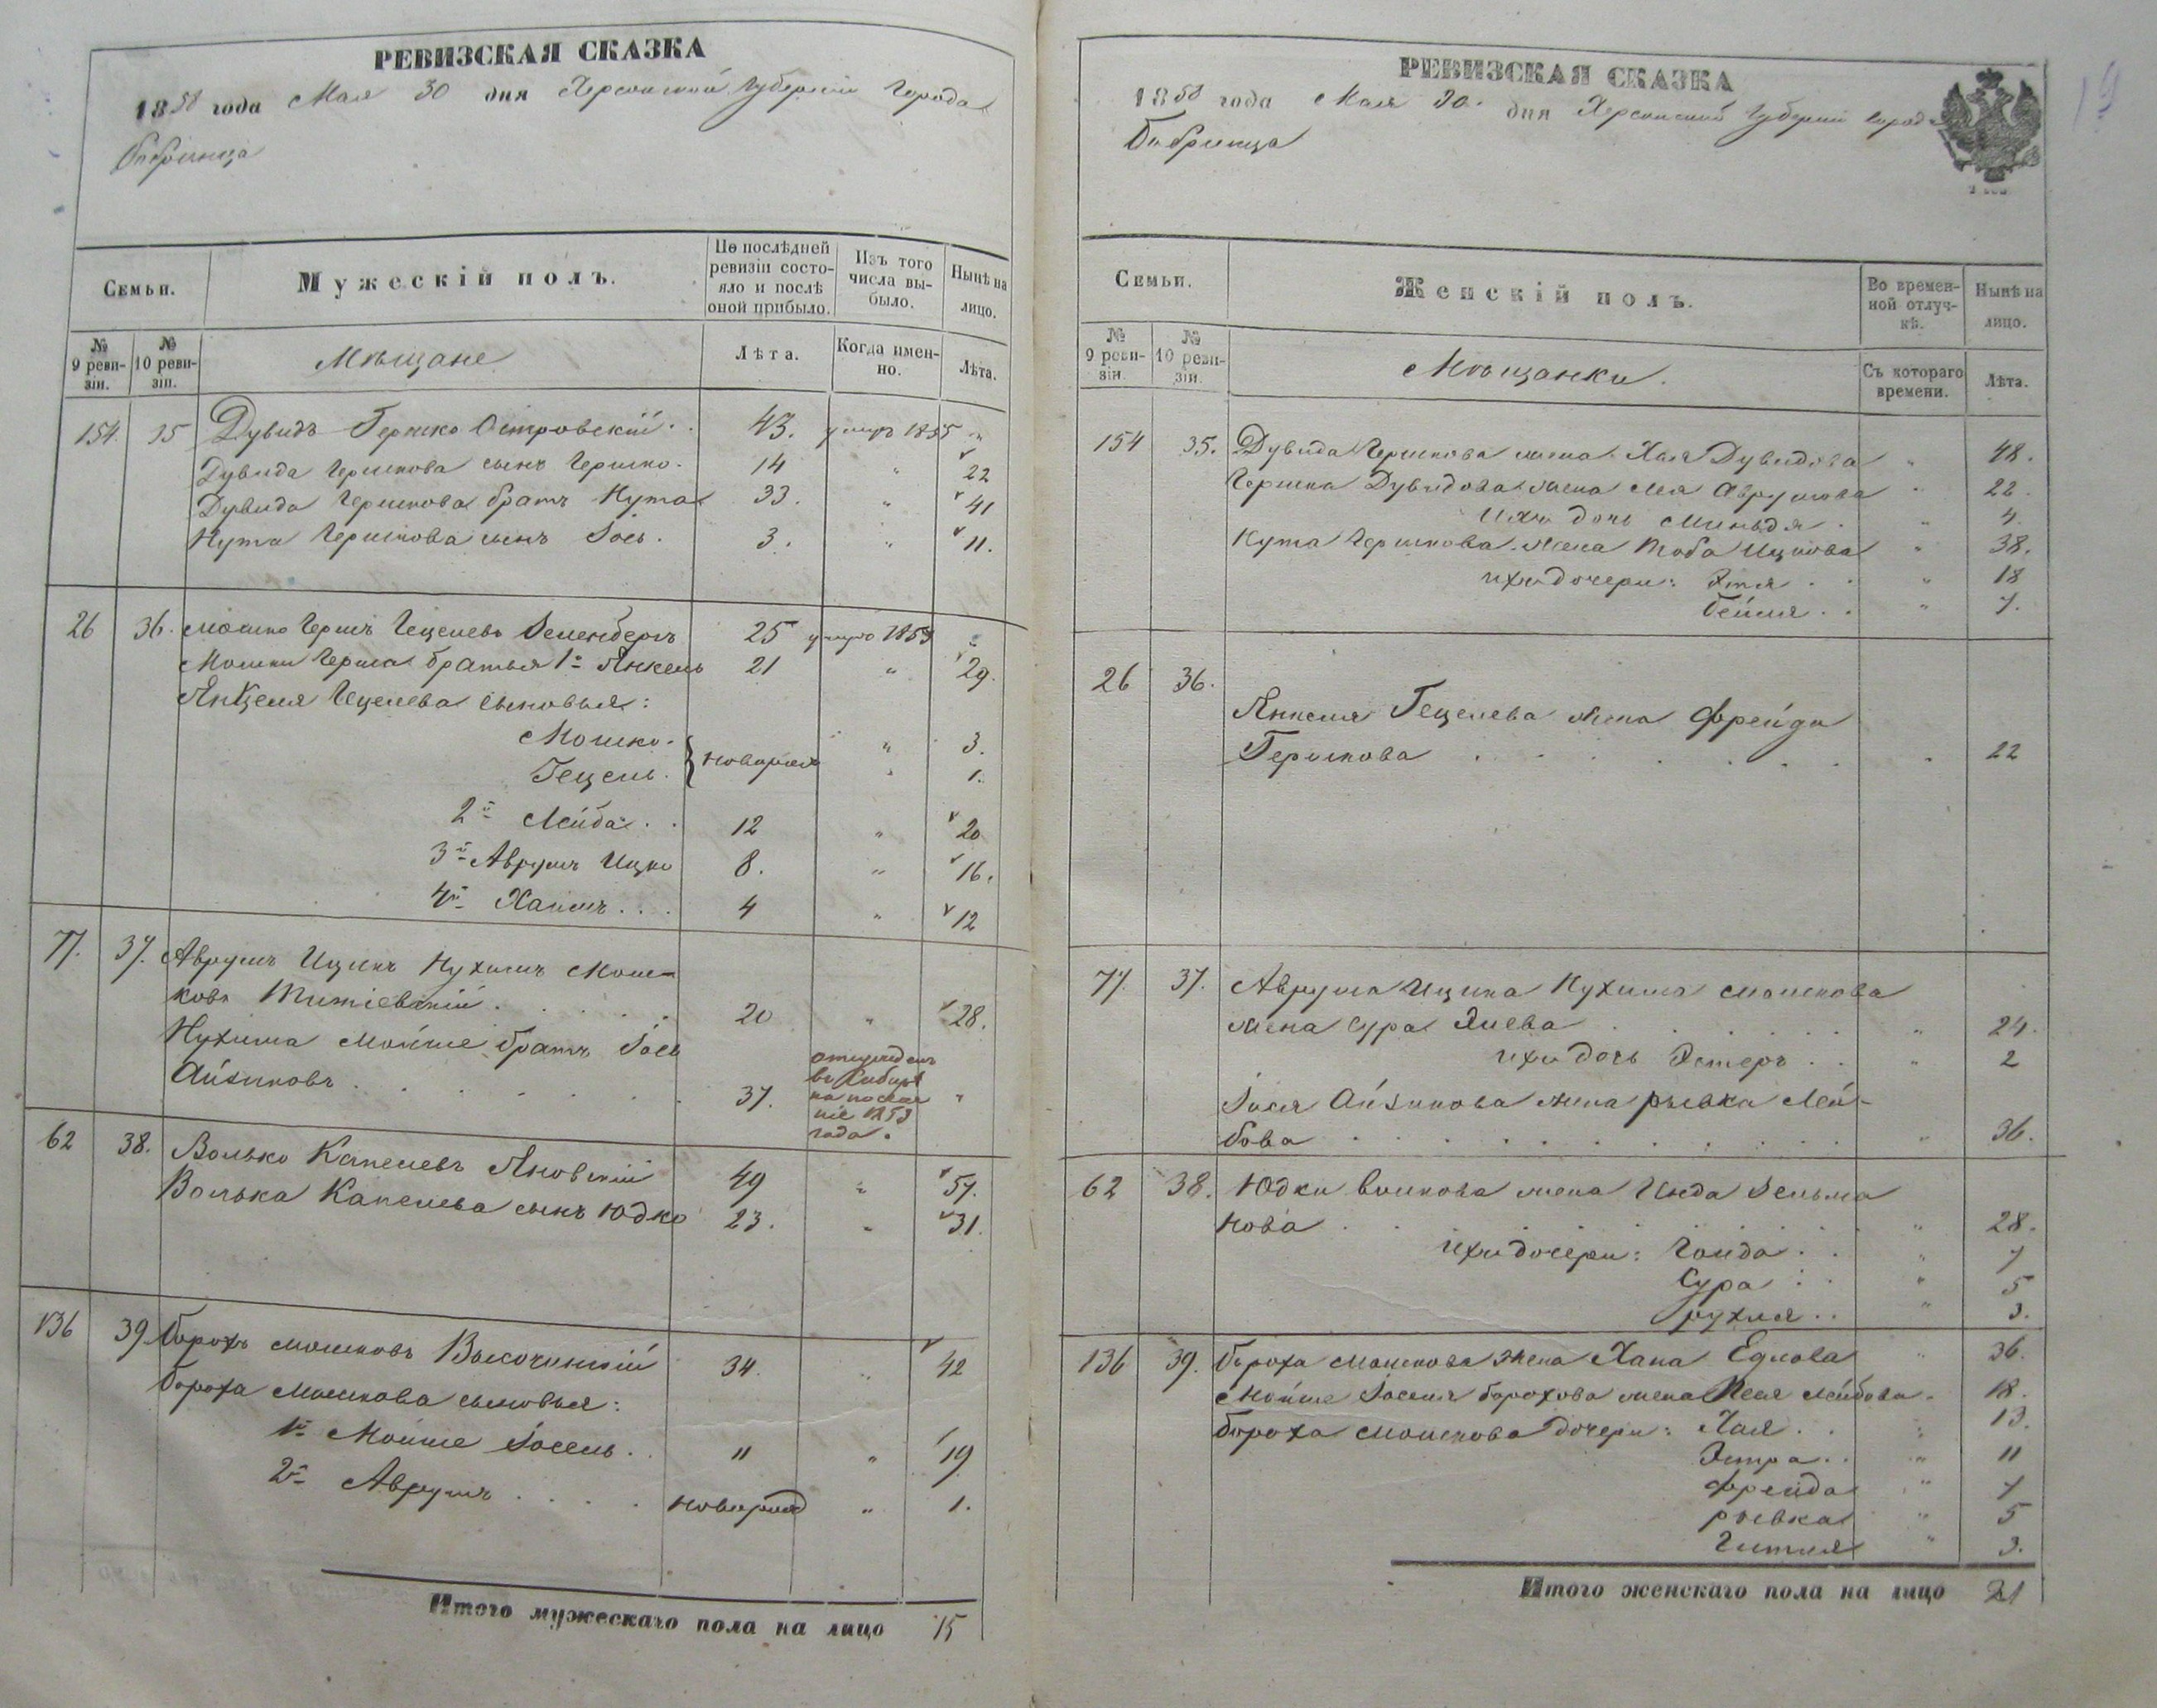 РЕВИЗСКАЯ СКАЗКА
1858 года Мая 30 дня Херсонской Губерніи Города
Бобринца
Семьи.
Мужескій полъ.
По послѣдней ревизіи состояло и послѣ оной прибыло.
Изъ того числа выбыло.
Нынѣ на лицо.
№ 9 ревизіи.
№ 10 ревизіи.
Мѣщане
Лѣта.
Когда именно.
Лѣта.
154. 35 Дувидъ Гершко Островскій 43. умеръ 1855 "
Дувида Гершкова сынъ Гершко. 14 " 22
Дувида Гершкова братъ Нута 33. " 41
Нута Гершкова сынъ Іось. 3. " 11.
26 36. Мошко Гершъ Гецелевъ Зеленбергъ 25 умеръ 1853 "
Мошки Герша братья 1й Янкель 21 " 29.
Янкеля Гецелева сыновья:
Мошко. " 3.
Гецель. новорожд " 1.
2й Лейба 12 " 20
3й Аврумъ Ицко 8. " 16.
4й Хаимъ 4 " 12
77. 37. Аврумъ Ицикъ Нухимъ Мош-
ковъ Титіевскій 20 " 28.
Нухима Мойше братъ Іось
Айзиковъ 37. отправленъ въ Сибирь на поселеніе 1853 года. "
62 38. Волько Капелевъ Яновскій 49 " 57.
Волька Капелева сынъ Юдко 23. " 31.
136 39. Борохъ Мошковъ Высочинскій 34. " 42
Бороха Мошкова сыновья:
1й Мойше Іосель 11 " 19
2й Аврумъ новорожд " 1.
Итого мужескаго пола на лицо 15
РЕВИЗСКАЯ СКАЗКА
1858 года Мая 30. дня Херсонской Губерніи Города
Бобринца
19
Семьи.
Женскій полъ.
Во временной отлучкѣ.
Нынѣ на лицо.
№ 9 ревизіи.
№ 10 ревизіи.
Мѣщанки.
Съ котораго времени.
Лѣта.
154 35. Дувида Гершкова жена Хая Дувидова " 48.
Гершка Дувидова жена Лея Аврумова " 22.
Ихъ дочь Миньдя " 4.
Нута Гершкова жена Тоба Ицкова " 38.
ихъ дочери: Этя " 18
Бейля " 7.
26 36.
Янкеля Гецелева жена Фрейда
Гершкова " 22
77. 37. Аврума Ицика Нухима Мошкова
жена Сура Элева " 24.
ихъ дочь Эстеръ " 2
Іося Айзикова жена Рывка Лей-
бова " 36.
62 38. Юдки Волькова жена Инда Зельма
нова " 28.
ихъ дочери: Голда " 7
Сура " 5
Рухля " 3.
136 39. Бороха Мошкова жена Хана Едлова " 36.
Мойше Іоселя Борохова жена Пеля Лейбова " 18.
Бороха Мошкова дочери: Хая " 13.
Эстра " 11
Фрейда " 7
Рывка " 5
Гитля " 3.
Итого женскаго пола на лицо 21